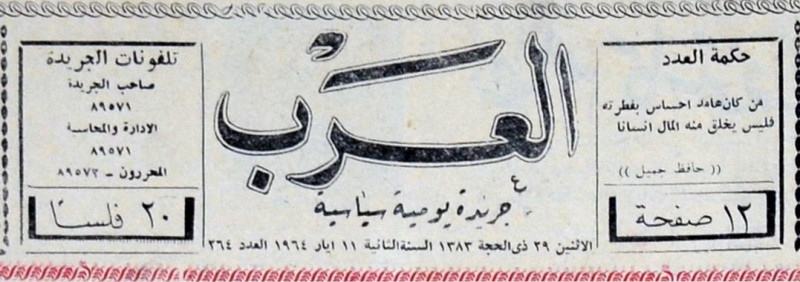 حكمة العدد
من كان هامد احساس بفطرته
فليس يخلق منه المال انسانا
(( حافظ جميل ))
١٢ صفحة
العرب
جريدة يومية سياسية
الاثنين ٢٩ ذي الحجة ١٣٨٣ السنة الثانية ١١ ايار ١٩٦٤ العدد ٢٦٤
تلفونات الجريدة
صاحب الجريدة
٨٩٥٧١
الادارة والمحاسبة
٨٩٥٧١
المحررون - ٨٩٥٧٢
٢٠ فلسا